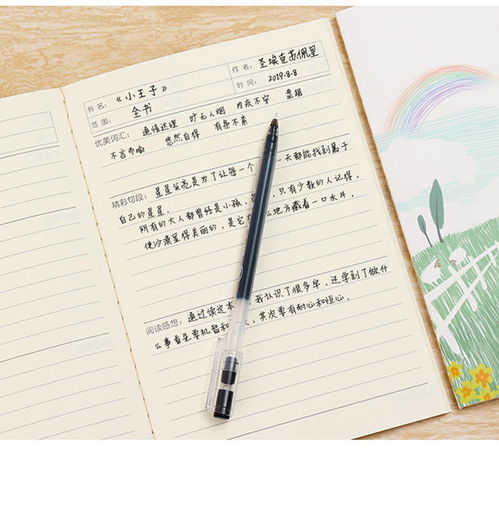 书名: 《小王子》 作者: 圣埃克苏佩里
范围: 全书 时间: 2019.8.8
优美词汇: 通情达理
不言而喻 悠然自得 有条不紊
精彩句段: 星星发亮是为了让每一个 一天都能找到属于
自己的星星。
所有的大人都曾经是小孩, 只有少数的人记得。
使沙漠显得美丽的,是它 地方藏着一口水井。
阅读感想: 通过读这本 我认识了很多字,还学到了做什
么事首先要机智和 其次要有耐心和恒心。